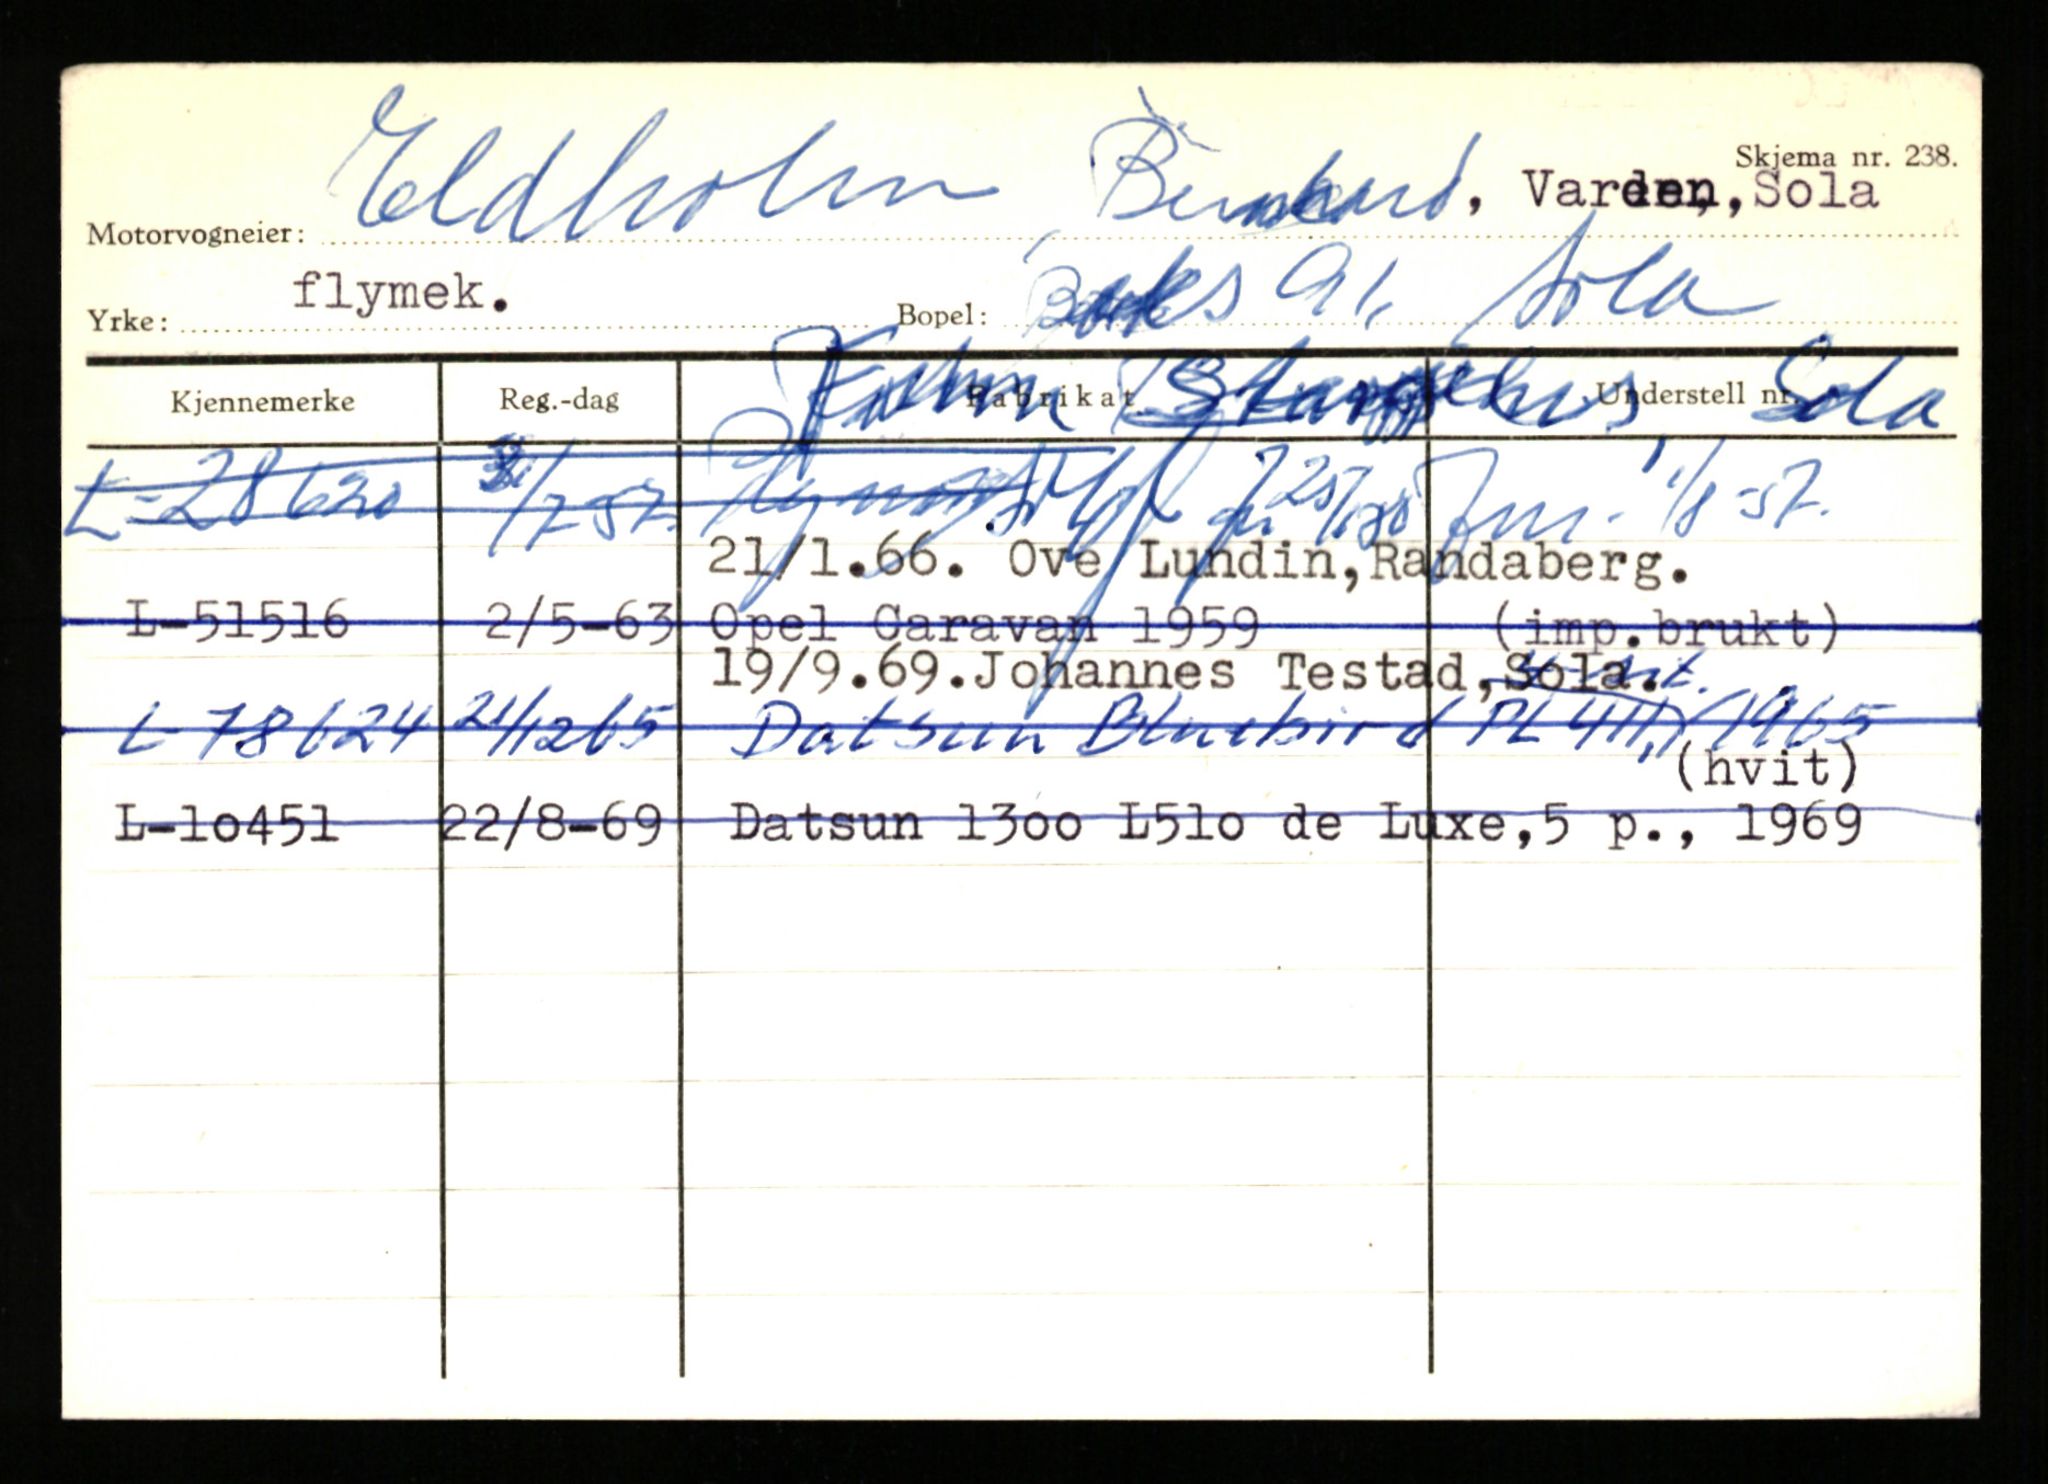 Skjema nr. 238.
Motorvogneier: Eldholm Bernhard, Varden, Sola
Yrke: flymek. Bopel: Boks 91, Sola
Kjennemerke Reg.-dag Fabrikat Understell nr. Sola
L-28620 /7-57. 1/8-57.
21/1.66. Ove Lundin,Randaberg.
L-51516 2/5-63 Opel Caravan 1959 (imp.brukt)
19/9.69.Johannes Testad,Sola.
L-78624 21/12 65 Datsun Bluebird PL 411, 1965
(hvit)
L-10451 22/8-69 Datsun 1300 L510 de Luxe,5 p., 1969